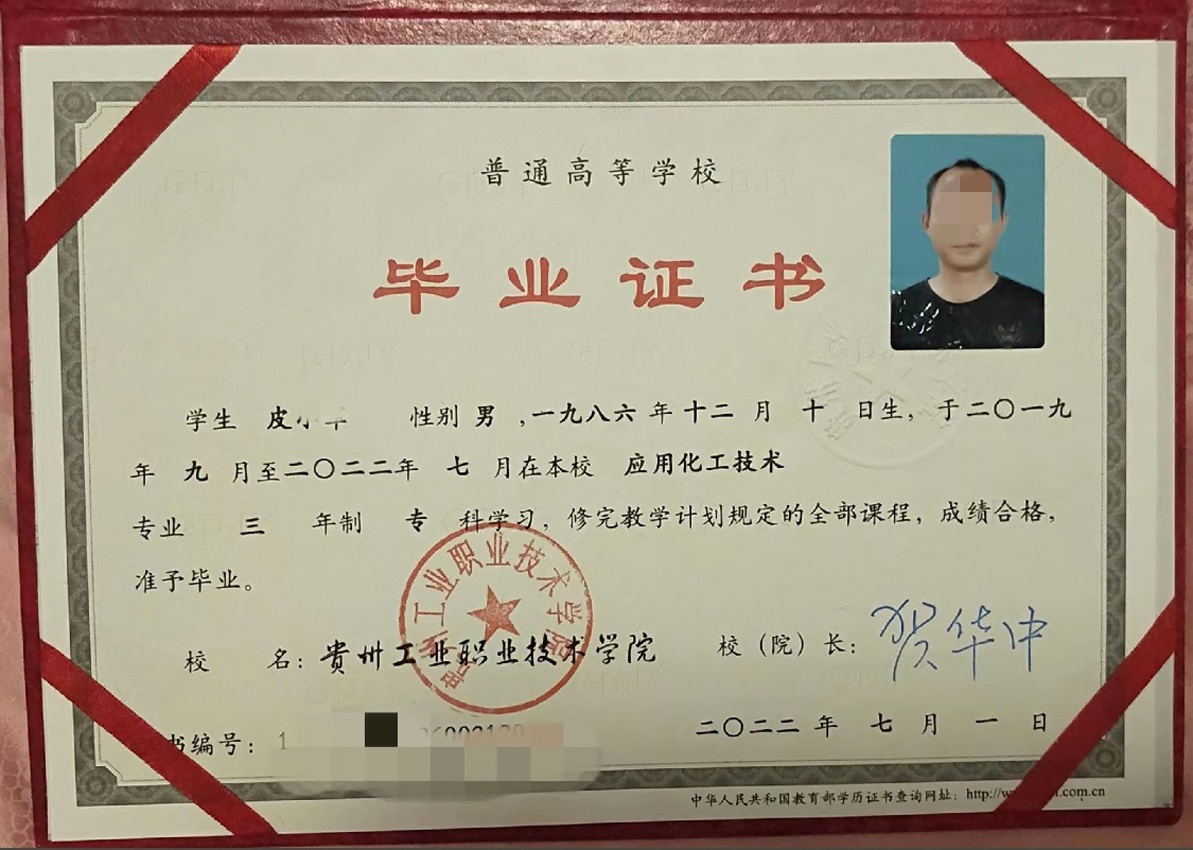 普通高等学校
毕业证书
学生 皮小 性别 男 ,一九八六 年 十二 月 十 日生,于二〇一九
年 九 月至二〇二二年 七 月在本校 应用化工技术
专业 三 年制 专 科学习,修完教学计划规定的全部课程,成绩合格,
准予毕业。
贵州工业职业技术学院
校 名:贵州工业职业技术学院 校(院)长:贺华中
书编号:1
二〇二二 年 七 月 一 日
中华人民共和国教育部学历证书查询网址:http://w .com.cn